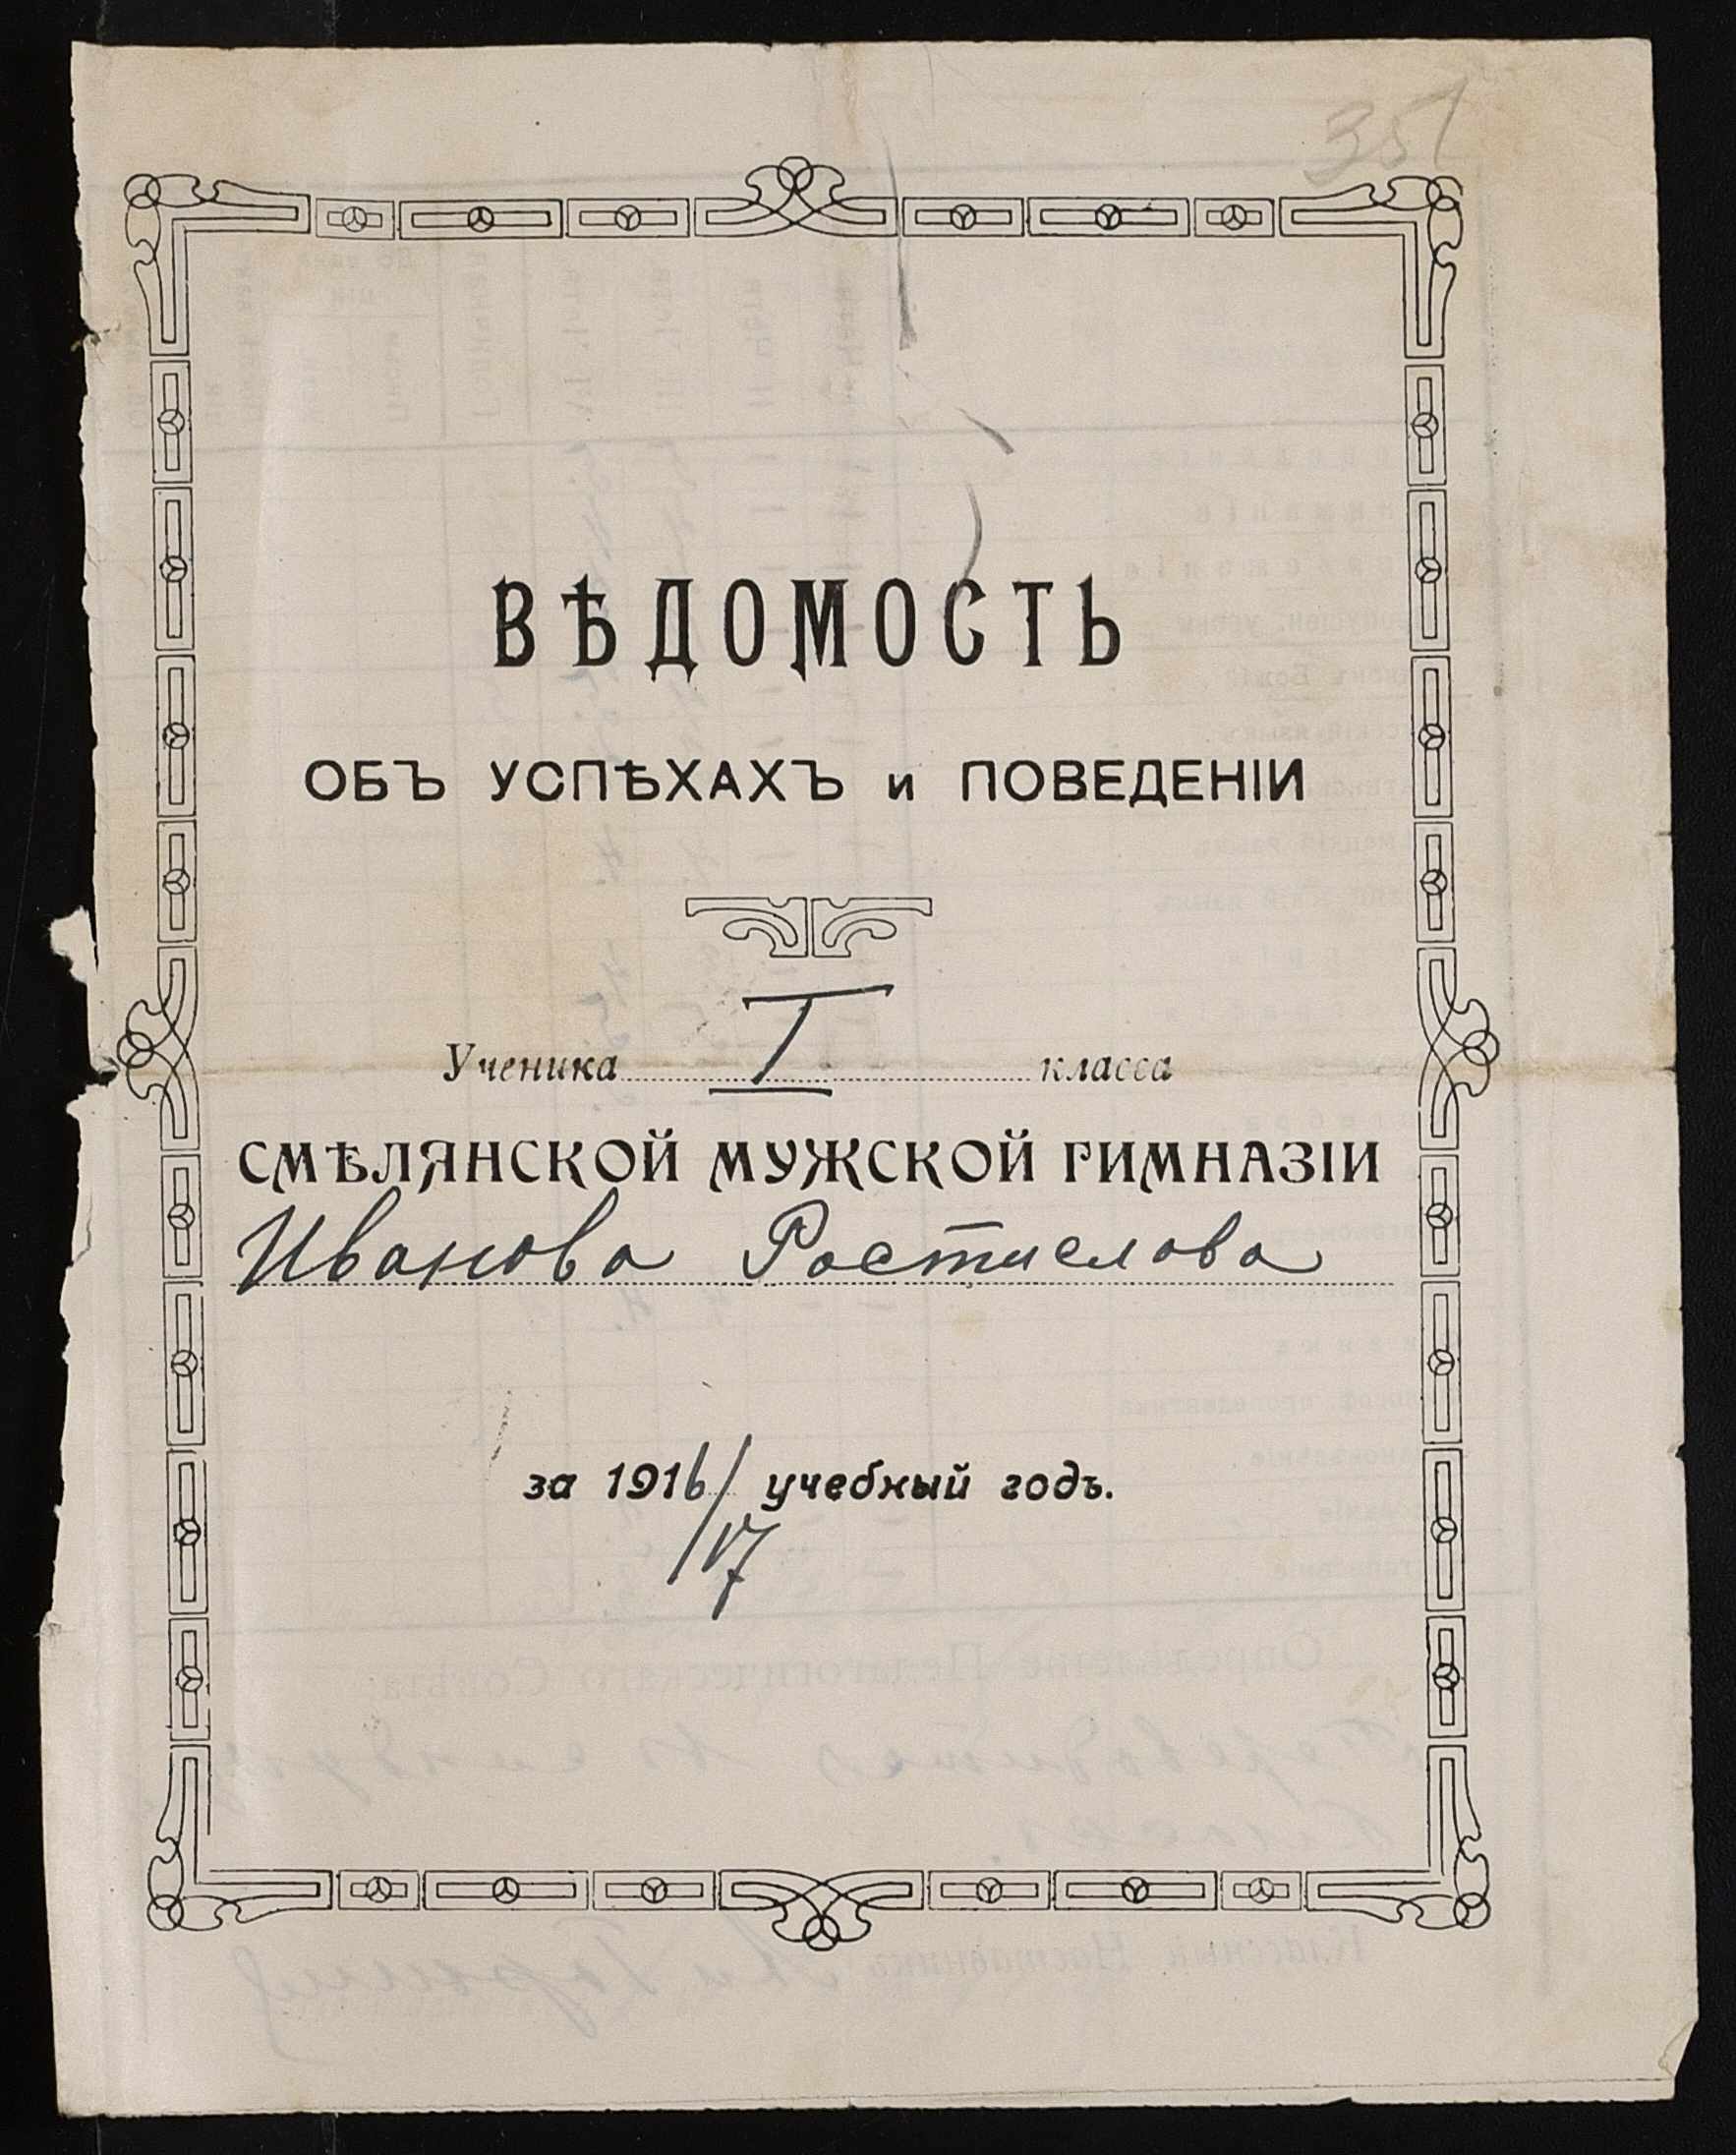 351
ВѢДОМОСТЬ
ОБЪ УСПѢХАХЪ и ПОВЕДЕНІИ
Ученика I класса
СМѢЛЯНСКОЙ МУЖСКОЙ ГИМНАЗІИ
Иванова Ростислава
за 1916/17 учебный годъ.